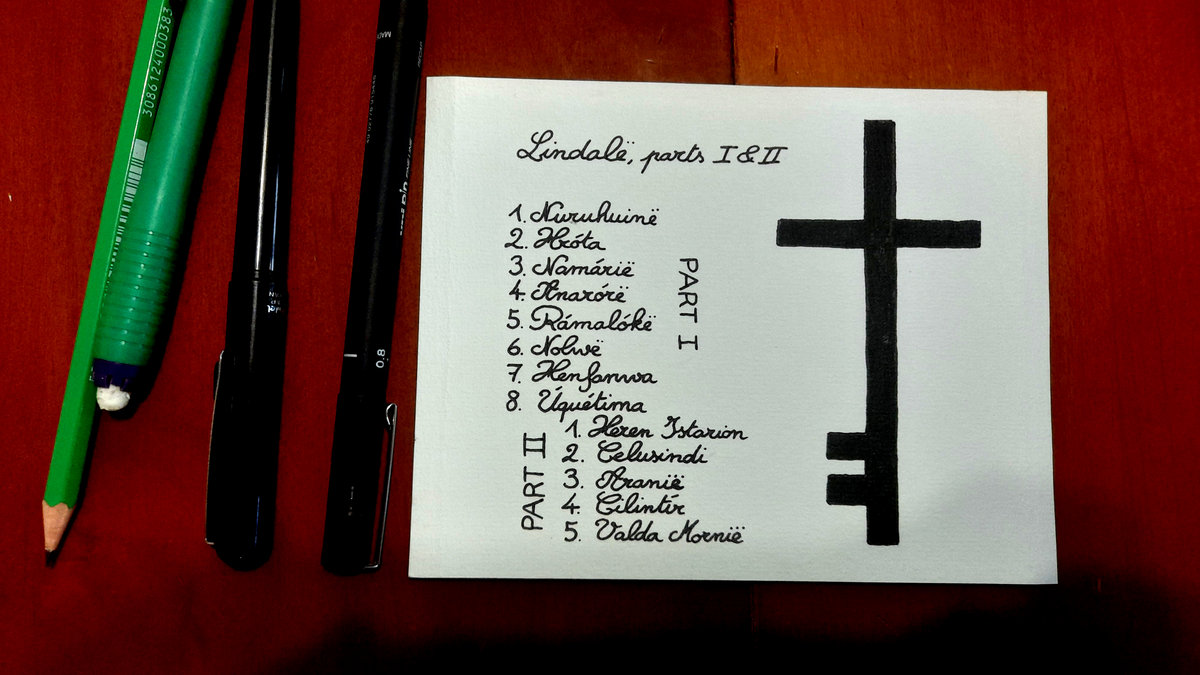 Lindalë, parts I & II
1. Nuruhuinë
2. Hróta
3. Namárië
4. Anarórë
5. Rámalókë
6. Nolwë
7. Henfanwa
8. Úquétima
PART I
1. Heren Istarion
2. Celusindi
3. Aranië
4. Cilintír
5. Valda Mornië
PART II
3086124000383
0.8